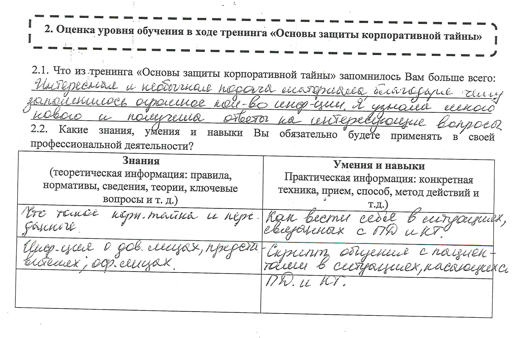 2. Оценка уровня обучения в ходе тренинга «Основы защиты корпоративной тайны»
2.1. Что из тренинга «Основы защиты корпоративной тайны» запомнилось Вам больше всего:
Интересная и необычная подача материала благодаря чему
запомнилось огромное кол-во инф-ции. Я узнала много
нового и получила ответы на интересующие вопросы
2.2. Какие знания, умения и навыки Вы обязательно будете применять в своей
профессиональной деятельности?
Знания
(теоретическая информация: правила,
нормативы, сведения, теории, ключевые
вопросы и т. д.)
Умения и навыки
Практическая информация: конкретная
техника, прием, способ, метод действий и
т.д.)
Что такое корп. тайна и перс.
данные.
Как вести себя в ситуациях,
связанных с ПД и КТ.
Инф-ция о дов. лицах, предста-
вителях, оф. лицах.
Скрипты общения с пациен-
тами в ситуациях, касающихся
ПД. и КТ.